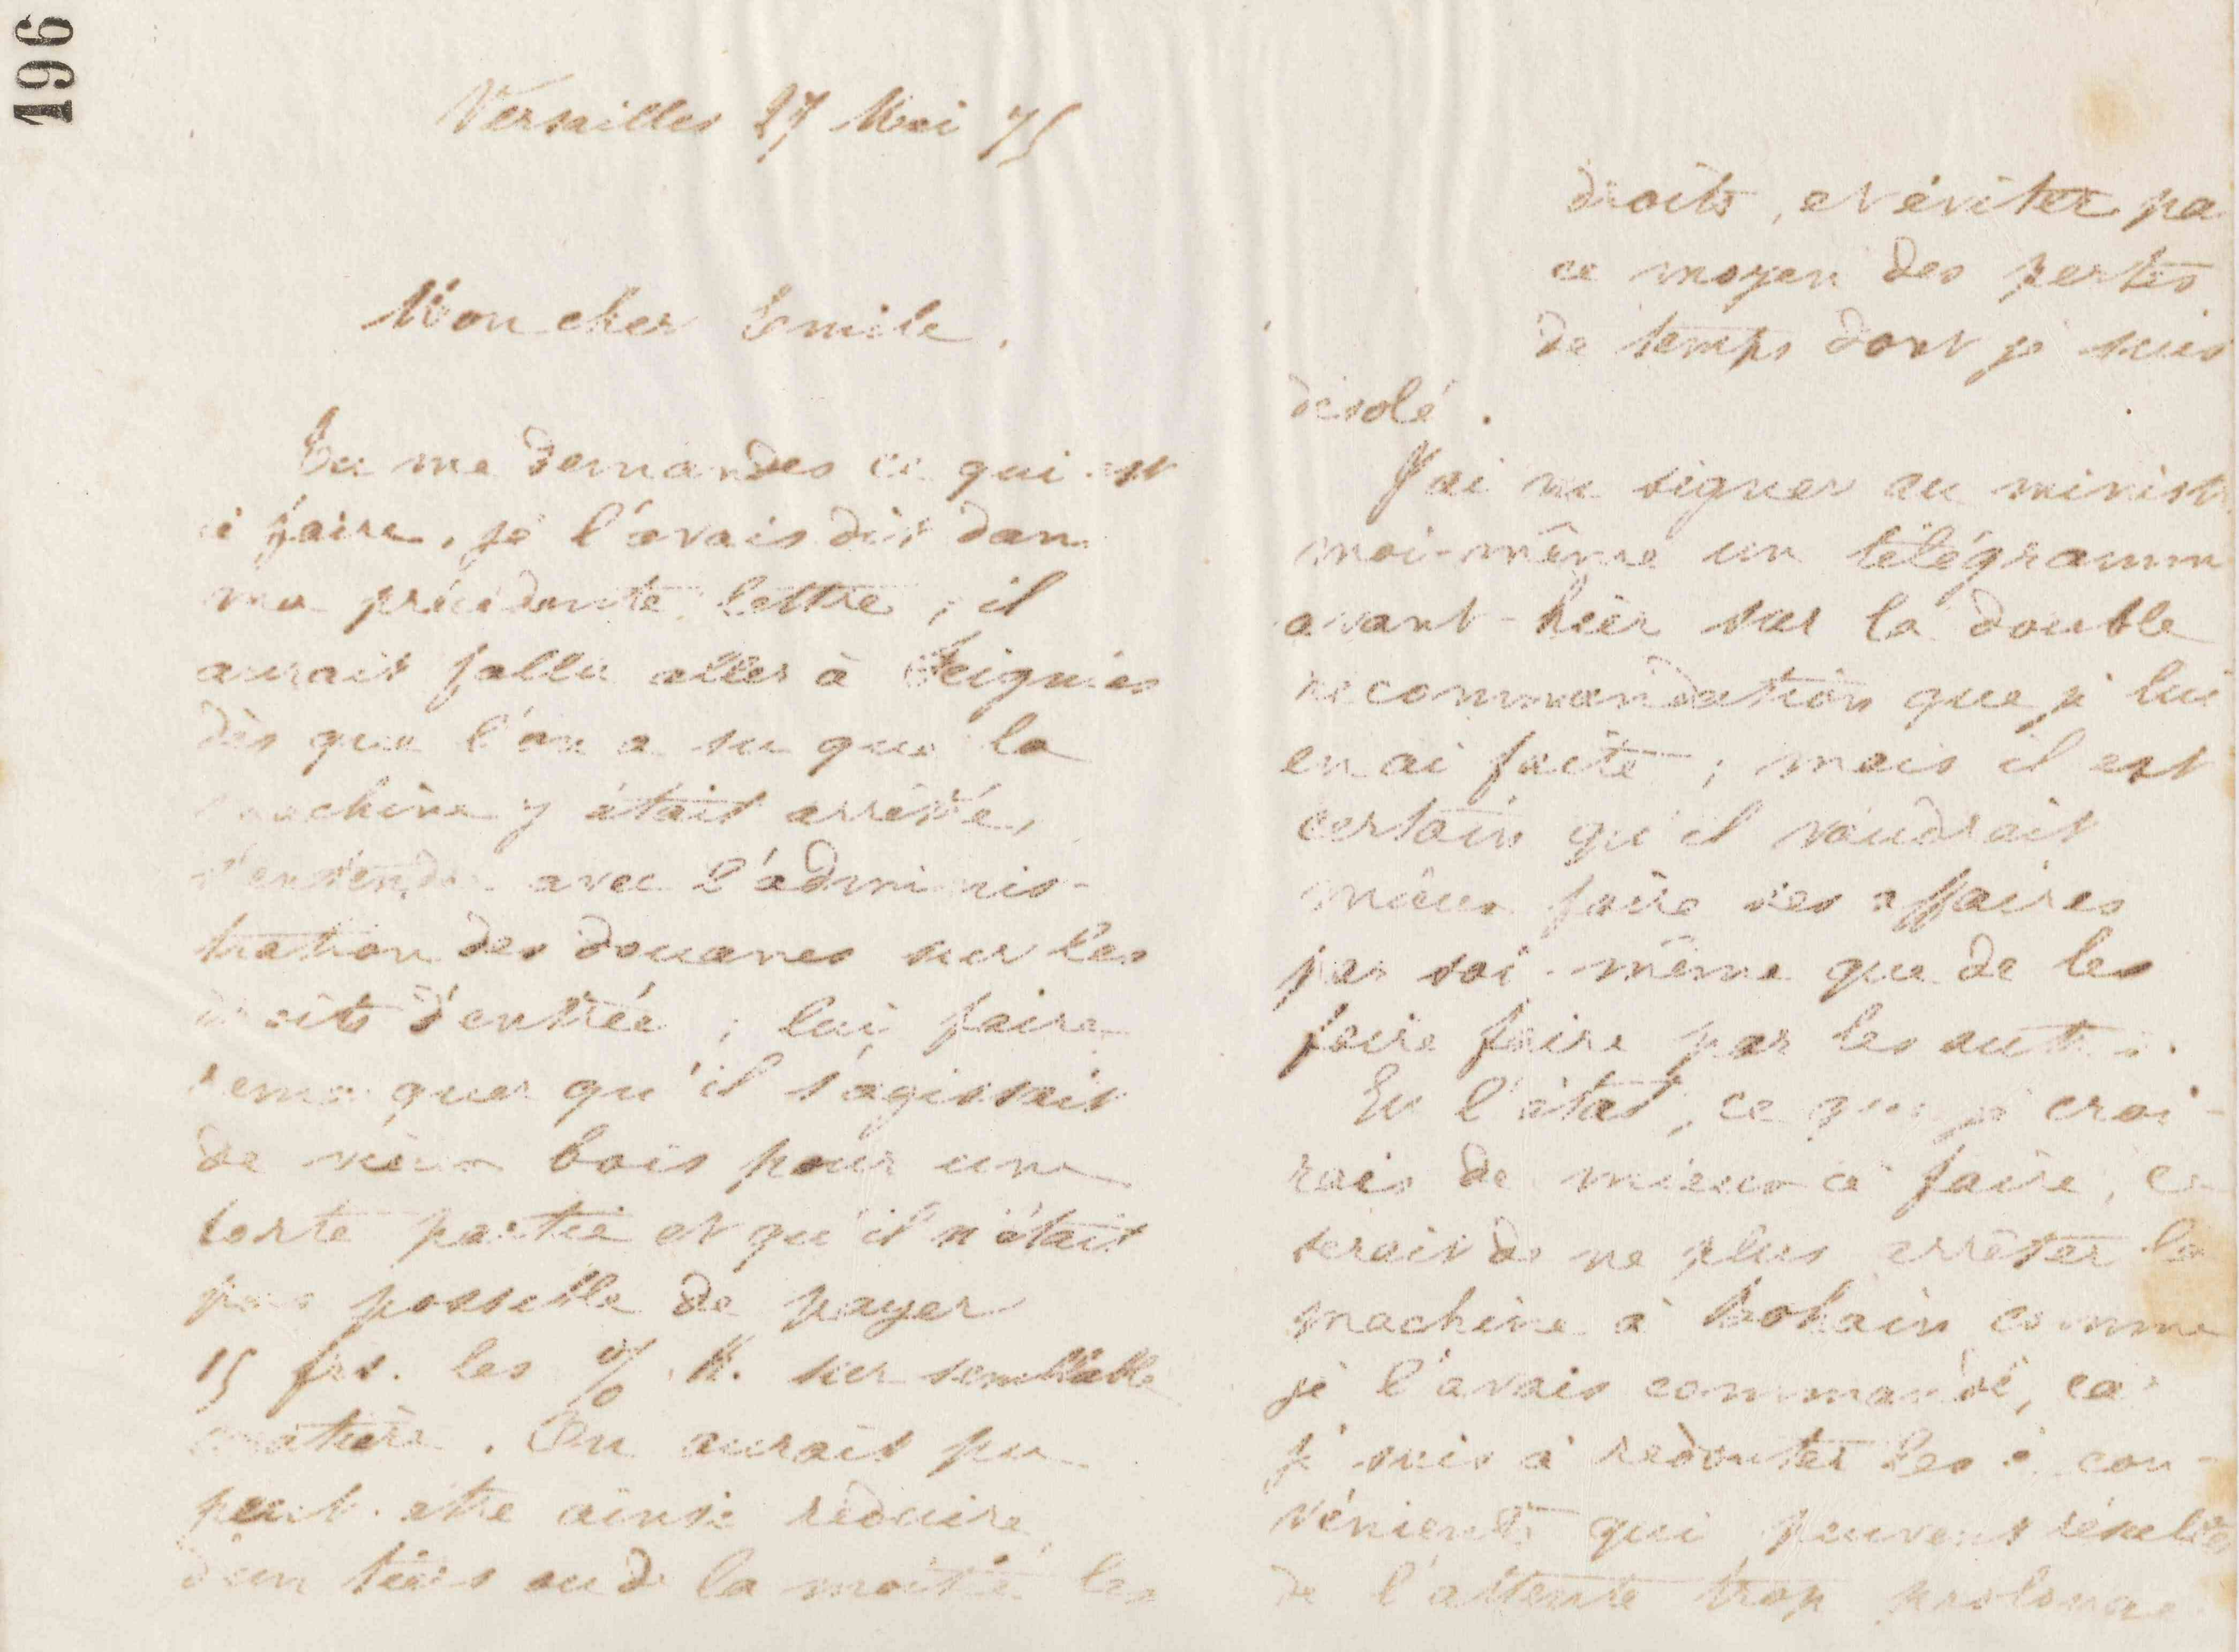 196
Versailles 27 Mai 75
Mon cher Emile,
Tu me demandes ce qui est
à faire, je l'avais dit dan
ma précédente lettre, il
aurait fallu aller à Feignies
dès que l'on a su que la
machine y était arrêtée,
s'entendre avec l'adminis-
tration des douanes sur les
droits d'entrée ; lui faire
remarquer qu'il s'agissait
de vieux bois pour une
forte partie et qu'il n'était
pas possible de payer
15 frs. les % K. sur semblable
matière. On aurait pu
peut-etre ainsi réduire
d'un tiers ou de la moitié les
droits, et éviter pa
ce moyen des pertes
de temps dont je suis
désolé.
J'ai vu signer au minist
moi-même un télégramm
avant-hier sur la double
recommandation que je lui
en ai faite ; mais il est
certain qu'il vaudrait
mieux faire ses affaires
par soi-même que de les
faire faire par les autres.
En l'état, ce que je croi-
rais de mieux à faire, ce
serait de ne plus arrêter la
machine à Bohain comme
je l'avais commandé, car
je suis à redouter les incon-
vénients qui peuvent résulter
de l'attente trop prolongé